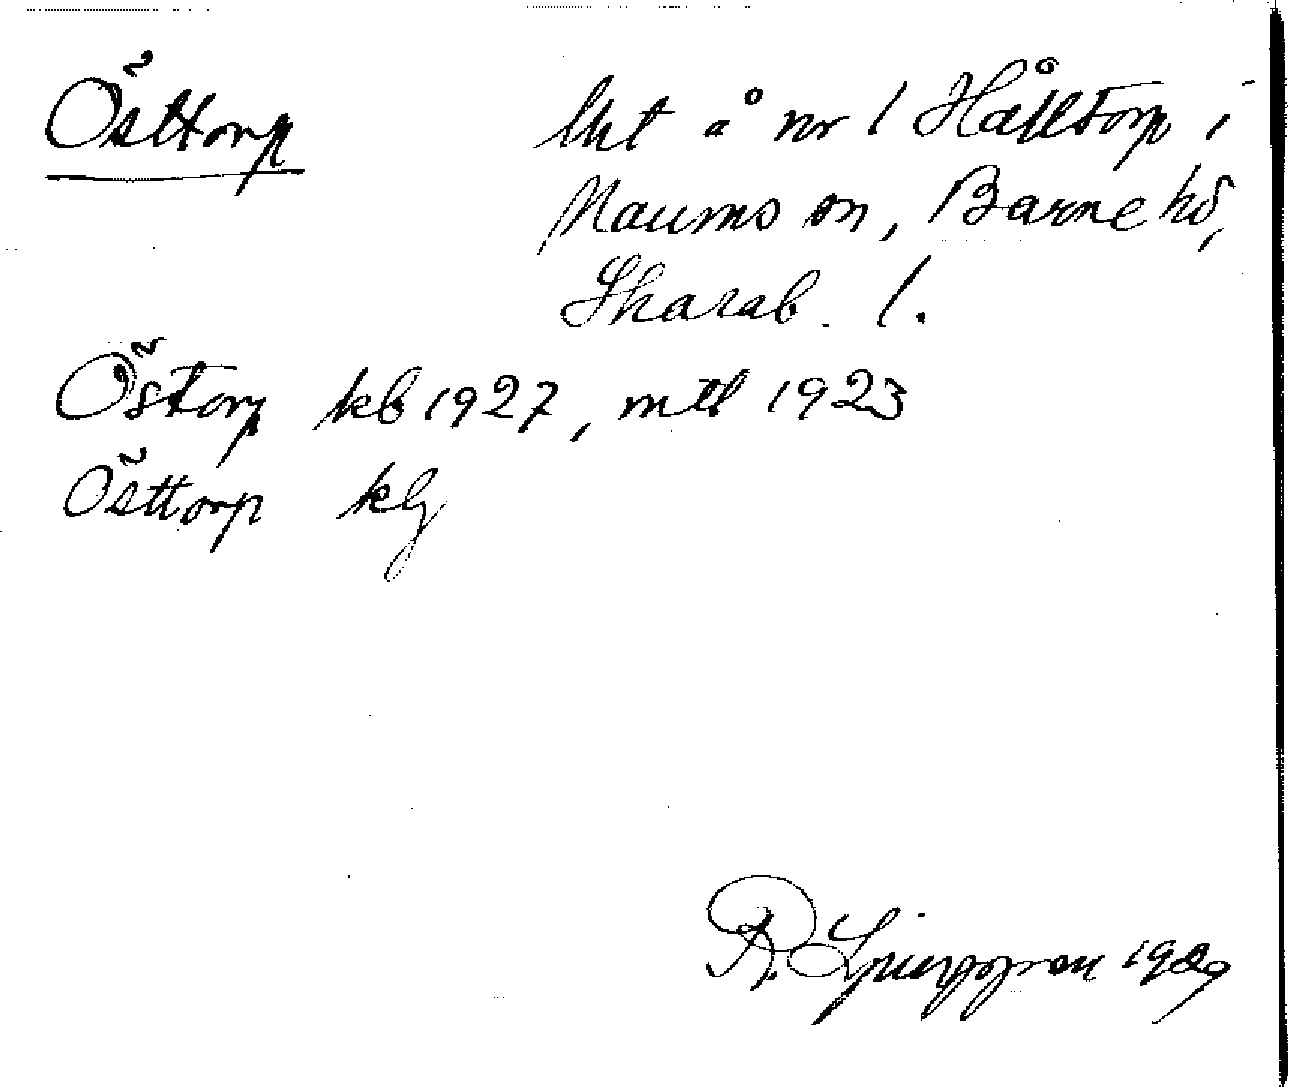 Östtorp
lht å nr 1 Hålltorp i
Naums sn, Barne hd,
Skarab. l.
Östorp kb 1927, mtl 1923
Östtorp klg
R. Ljunggren 1929